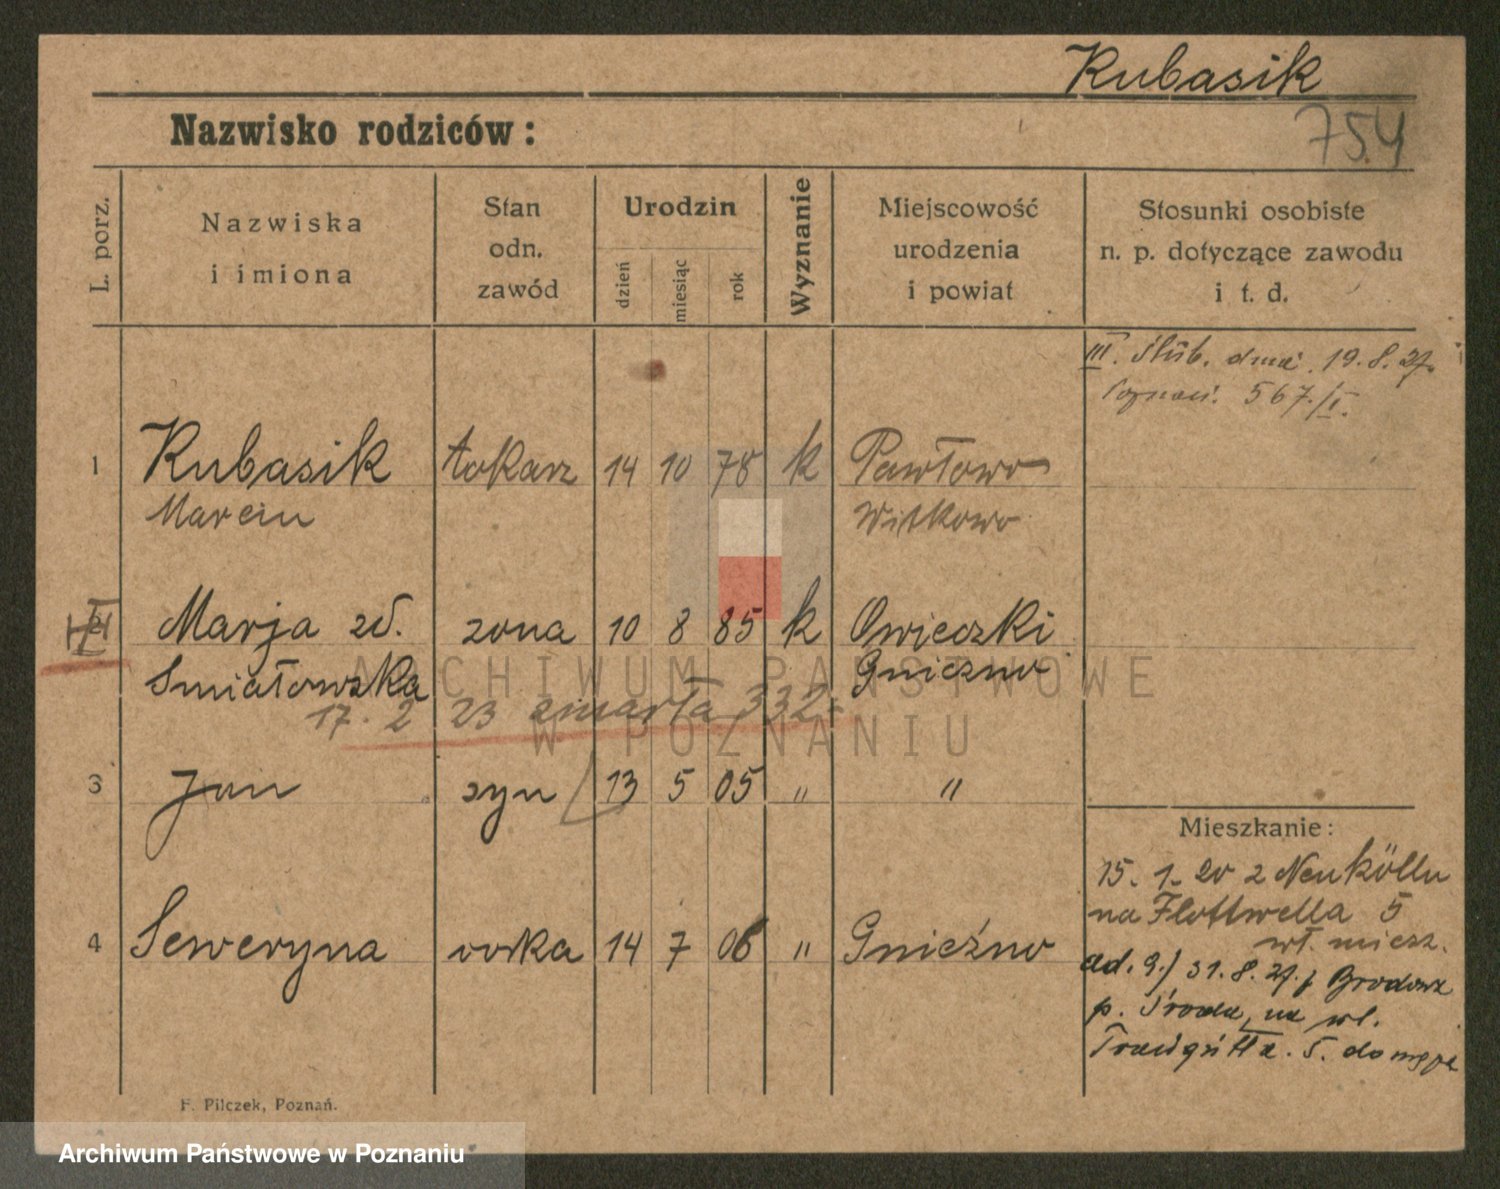 Kubasik
754
Nazwisko rodziców:
L. porz.
Nazwiska
i imiona
Stan
odn.
zawód
Urodzin
dzień
miesiąc
rok
Wyznanie
Miejscowość
urodzenia
i powiat
Stosunki osobiste
n. p. dotyczące zawodu
i t. d.
III. Ślub. dnia 19.8.27.
Poznań. 567./I.
1 Kubasik tokarz 14 10 78 k Pawłowo
Marcin Witkowo
Marja zd. żona 10 8 85 k Owieczki
Smiałowska Gniezno
17. 2 23 zmarła 332
3 Jan syn 13 5 05 " "
4 Seweryna corka 14 7 06 " Gniezno
Mieszkanie:
15. 1. 20 z Neuköllu
na Flottwella 5
wł. miesz.
ad. 9.) 31.8.27.
p. Środa, na wł.
5. do męża
F. Pilczek, Poznań.
ARCHIWUM PAŃSTWOWE
W POZNANIU
Archiwum Państwowe w Poznaniu